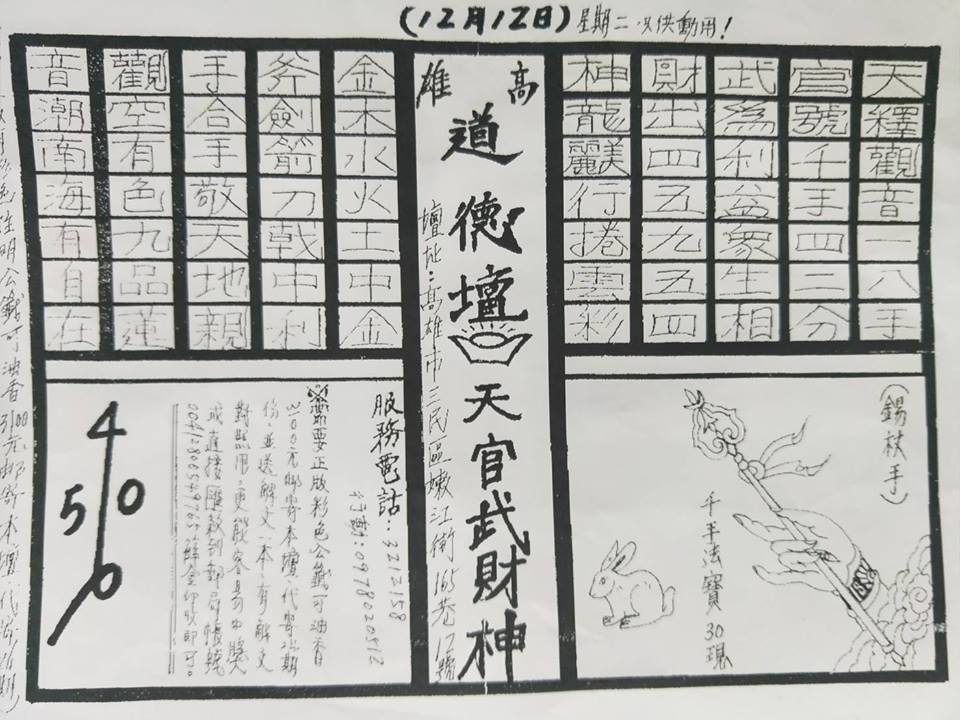 (12月12日)星期二 供動用!
天釋觀音一八手
官號千手四二分
武為利益眾生相
財出四五九五四
神龍 行捲雲彩
高雄
道德壇 天官武財神
壇址:高雄市三民區嫩江街165巷 號
金木水火土中金
斧劍箭刀戟中利
手合手敬天地親
觀空有色九品蓮
音潮南海有自在
(錫杖手)
千手法寶30現
服務電話:3212158
行動:0978020512
※需要正版彩色公籤可油香
3100元郵寄本壇,代寄 期
份,並送解文一本,有解文
對照用,更能容易中獎
或直接匯款到郵局帳號
00412800549765薛金印收即可。
4
5 0
0
註明公籤可油香3100元郵寄本壇,代寄 期)